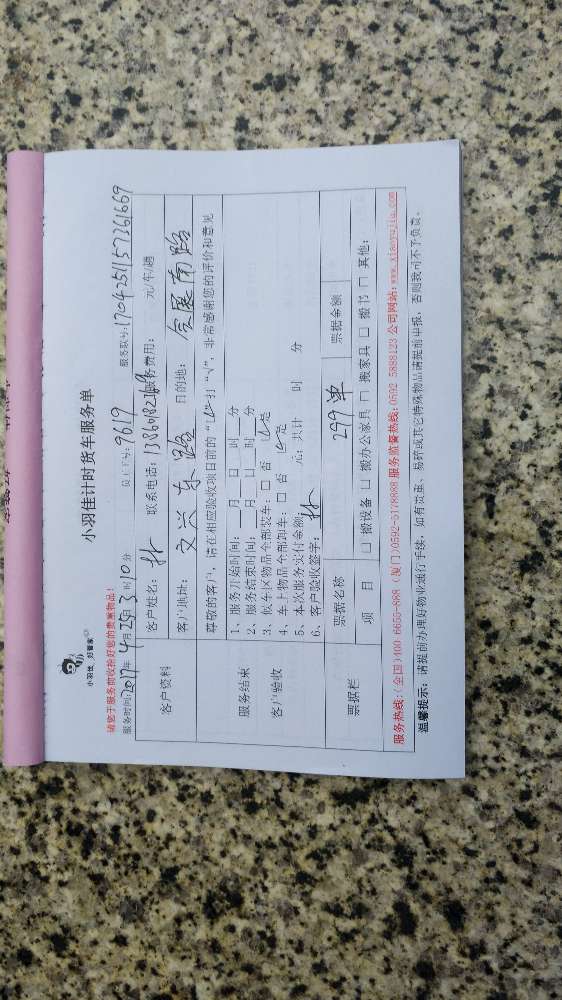 小羽佳 好管家
小羽佳计时货车服务单
请您于服务前收拾好您的贵重物品!
服务时间:2017年4月25日3时10分 员工工号:9619 服务账号:1704251157261669
客户资料
客户姓名:林 联系电话: 服务费用: 元/车/趟
客户地址:文兴东路 目的地:会展南路
服务结束
客户验收
尊敬的客户,请在相应验收项目前的“□”打“√”,非常感谢您的评价和意见
1、服务开始时间: 月 日 时 分
2、服务结束时间: 月 日 时 分
3、候车区物品全部装车:□ 否 ☑是
4、车上物品全部卸车:□ 否 ☑是
5、本次服务实付金额: 元;共计 时 分
6、客户验收签字:林
票据栏
票据名称 299单 票据金额
项 目 □ 搬设备 □ 搬办公家具 □ 搬家具 □ 搬书 □ 其他:
服务热线:(全国)400-6655-888 (厦门)0592-5178888 服务监督热线:0592-5888123 公司网站:www.xiaoyujia.com
温馨提示:请提前办理好物业通行手续,如有贵重、易碎或其它特殊物品请提前申报,否则我司不予负责。